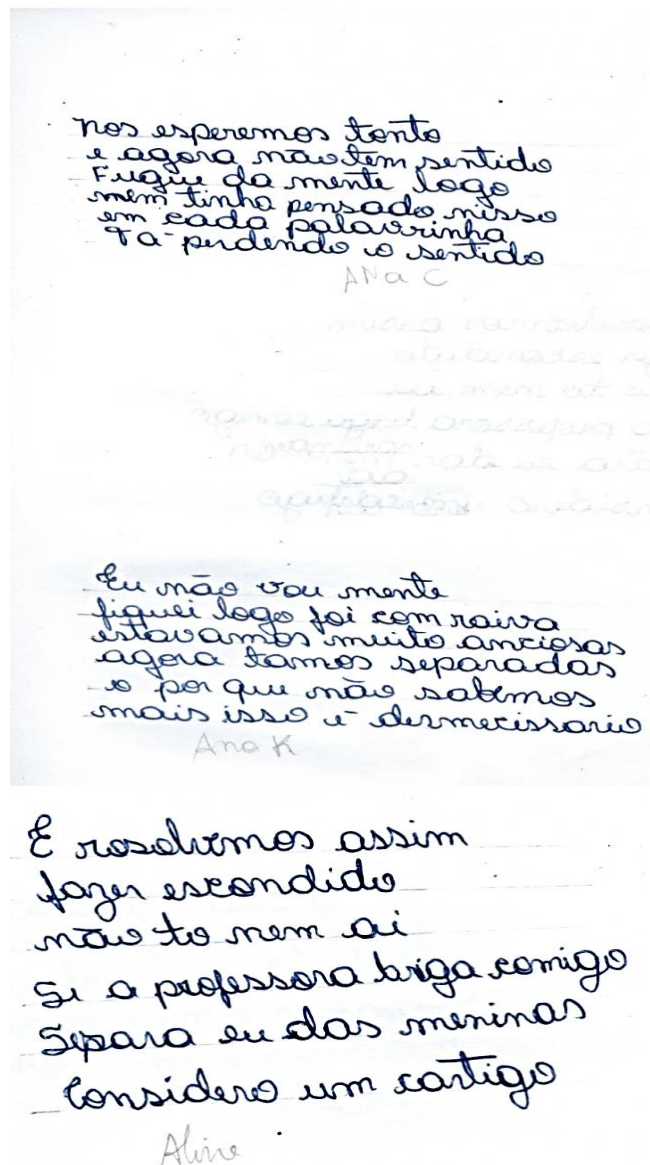 Nos esperemos tonto
e agora não tem sentido
Fugiu da mente logo
nem tinha pensado nisso
em cada palavrinha
Ta perdendo o sentido
ANa C
Eu não vou mente
fiquei logo foi com raiva
estavamos muito anciosas
agora tamos separadas
o por que não sabemos
mais isso é desnecissario
Ana K
E rosolvemos assim
fazer escondido
não to nem ai
Si a professora briga comigo
Separa eu das meninas
Considero um castigo
Aline